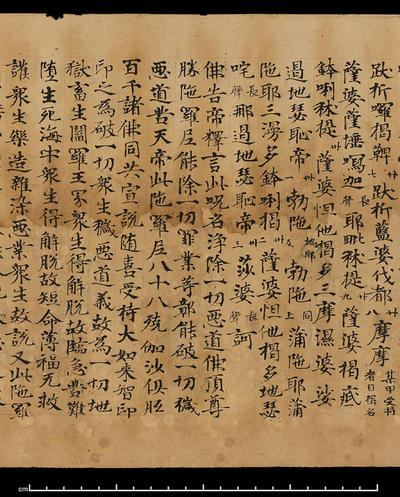 跋折囉揭鞞七 跋折藍婆伐都八 摩摩某甲受持者自稱名
薩婆薩埵嗚加聲長耶毗秣提九 薩婆揭底
鉢唎秣提卅 薩婆怛他揭多三摩濕婆娑
遏地瑟恥帝一 勃陁地耶反 勃陁上同 蒲陁耶蒲
陁耶三漫多鉢唎揭 薩婆怛他揭多地瑟
咤聲長那遏地瑟恥帝三 莎婆聲長訶
佛告帝釋言此呪名淨除一切惡道佛頂尊
勝陁羅尼能除一切罪業等鄣能破一切穢
惡道苦天帝此陁羅尼八十八殑伽沙俱胝
百千諸佛同共宣說隨喜受持大如來智印
印之為破一切衆生穢惡道義故為一切地
獄畜生閻羅王界衆生得解脫故臨急苦難
墮生死海中衆生得解脫故短命薄福无救
護衆生樂造雜染惡業衆生故說又此陁羅
cm